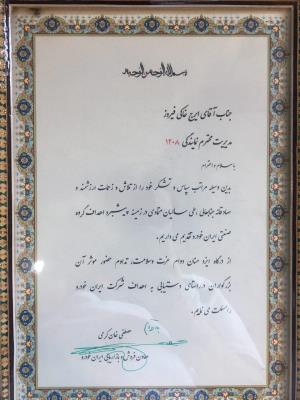 بسم الله الرحمن الرحیم
جناب آقای ایرج خاکی فیروز
مدیریت محترم نمایندگی ۱۲۰۸
با سلام و احترام
بدین وسیله مراتب سپاس و تشکر خود را از تلاش و زحمات ارزشمند و
صادقانه جنابعالی طی سالیان متمادی در زمینه پیشبرد اهداف گروه
صنعتی ایران خودرو تقدیم می داریم.
از درگاه ایزد منان دوام عزت و سلامت، تداوم حضور موثر آن
بزرگواران در راستای دستیابی به اهداف شرکت ایران خودرو
را مسئلت می نمایم.
مصطفی خان کرمی
معاون فروش و بازاریابی ایران خودرو